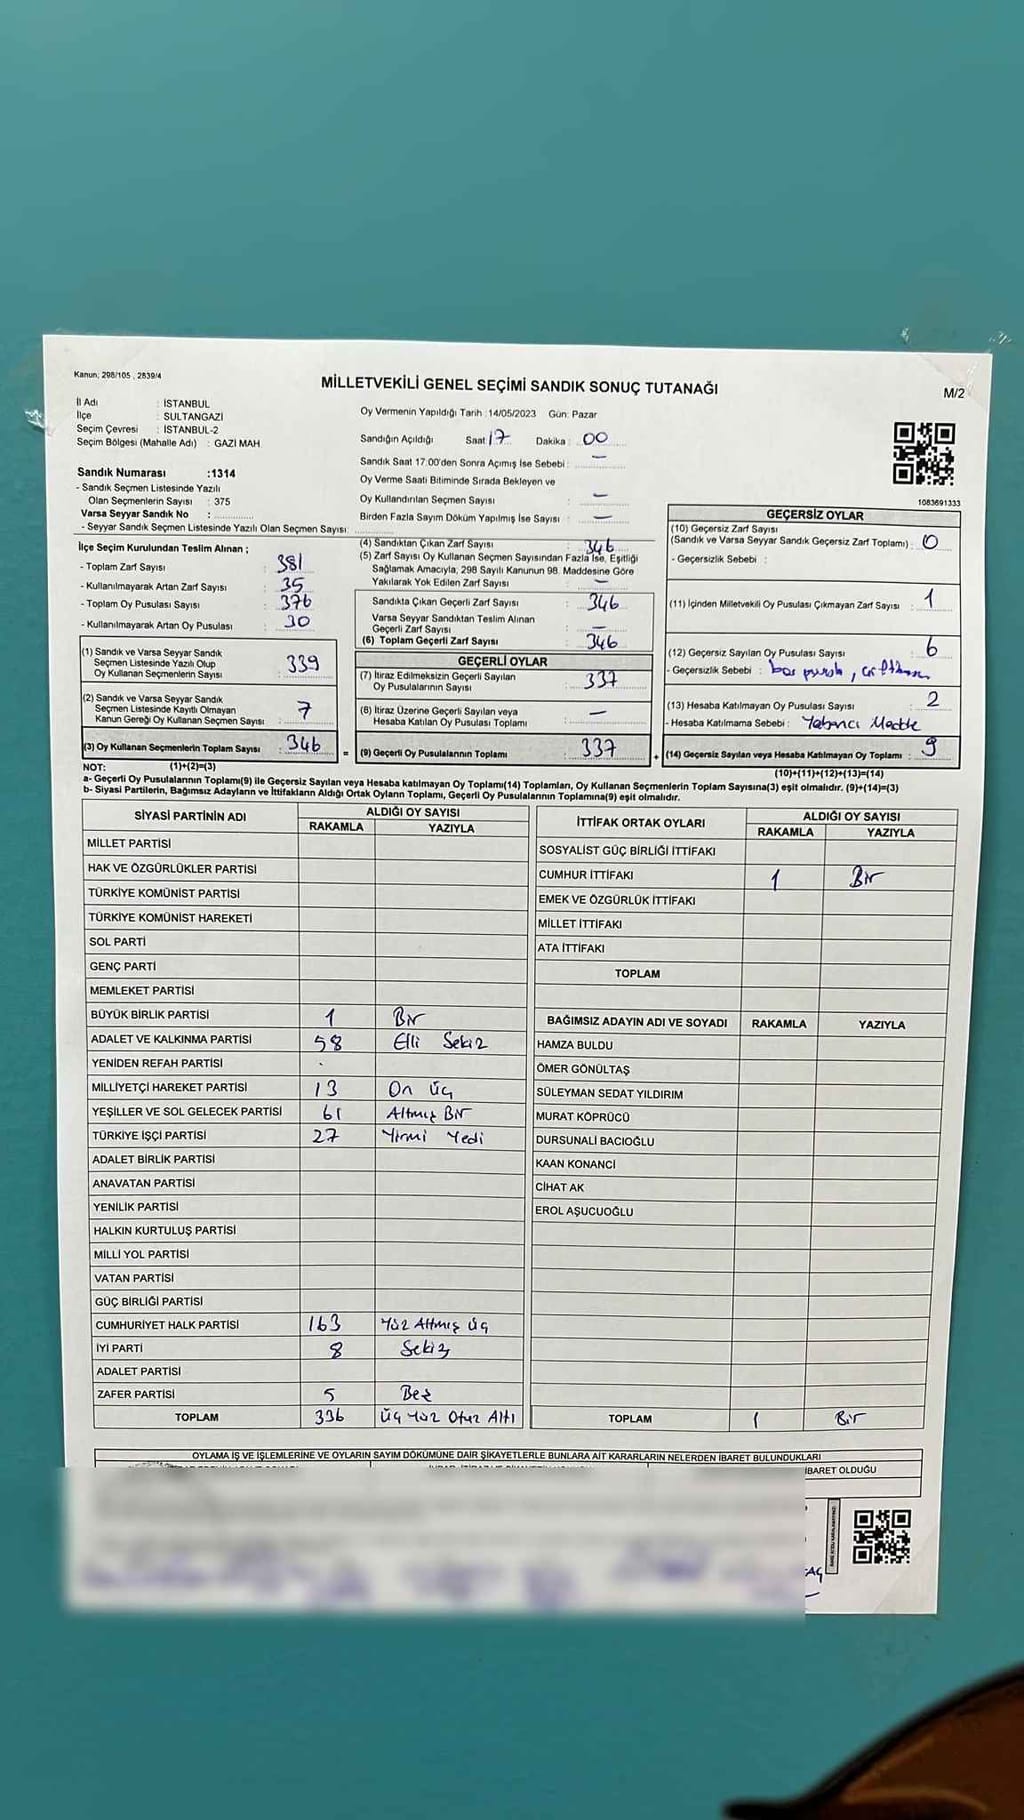 Kanun; 298/105 , 2839/4
MİLLETVEKİLİ GENEL SEÇİMİ SANDIK SONUÇ TUTANAĞI
M/2
İl Adı : İSTANBUL
İlçe : SULTANGAZİ
Seçim Çevresi : İSTANBUL-2
Seçim Bölgesi (Mahalle Adı) : GAZİ MAH.
Sandık Numarası :1314
- Sandık Seçmen Listesinde Yazılı
Olan Seçmenlerin Sayısı : 375
Varsa Seyyar Sandık No :
- Seyyar Sandık Seçmen Listesinde Yazılı Olan Seçmen Sayısı:
Oy Vermenin Yapıldığı Tarih :14/05/2023 Gün: Pazar
Sandığın Açıldığı Saat: 17 Dakika : 00
Sandık Saat 17.00'den Sonra Açmış İse Sebebi : —
Oy Verme Saati Bitiminde Sırada Bekleyen ve
Oy Kullandırılan Seçmen Sayısı : —
Birden Fazla Sayım Döküm Yapılmış İse Sayısı : —
1083691333
İlçe Seçim Kurulundan Teslim Alınan ;
- Toplam Zarf Sayısı : 381
- Kullanılmayarak Artan Zarf Sayısı : 35
- Toplam Oy Pusulası Sayısı : 376
- Kullanılmayarak Artan Oy Pusulası : 30
(1) Sandık ve Varsa Seyyar Sandık
Seçmen Listesinde Yazılı Olup
Oy Kullanan Seçmenlerin Sayısı : 339
(2) Sandık ve Varsa Seyyar Sandık
Seçmen Listesinde Kayıtlı Olmayan
Kanun Gereği Oy Kullanan Seçmen Sayısı : 7
(3) Oy Kullanan Seçmenlerin Toplam Sayısı : 346 =
(4) Sandıktan Çıkan Zarf Sayısı : 346
(5) Zarf Sayısı Oy Kullanan Seçmen Sayısından Fazla İse, Eşitliği
Sağlamak Amacıyla, 298 Sayılı Kanunun 98. Maddesine Göre
Yakılarak Yok Edilen Zarf Sayısı : —
Sandıkta Çıkan Geçerli Zarf Sayısı : 346
Varsa Seyyar Sandıktan Teslim Alınan
Geçerli Zarf Sayısı : —
(6) Toplam Geçerli Zarf Sayısı : 346
GEÇERLİ OYLAR
(7) İtiraz Edilmeksizin Geçerli Sayılan
Oy Pusulalarının Sayısı : 337
(8) İtiraz Üzerine Geçerli Sayılan veya
Hesaba Katılan Oy Pusulası Toplamı : —
(9) Geçerli Oy Pusulalarının Toplamı : 337 +
GEÇERSİZ OYLAR
(10) Geçersiz Zarf Sayısı
(Sandık ve Varsa Seyyar Sandık Geçersiz Zarf Toplamı) : 0
- Geçersizlik Sebebi :
(11) İçinden Milletvekili Oy Pusulası Çıkmayan Zarf Sayısı : 1
(12) Geçersiz Sayılan Oy Pusulası Sayısı : 6
- Geçersizlik Sebebi :
(13) Hesaba Katılmayan Oy Pusulası Sayısı : 2
- Hesaba Katılmama Sebebi : Yabancı Madde
(14) Geçersiz Sayılan veya Hesaba Katılmayan Oy Toplamı : 9
NOT: (1)+(2)=(3)
(10)+(11)+(12)+(13)=(14)
a- Geçerli Oy Pusulalarının Toplamı(9) ile Geçersiz Sayılan veya Hesaba katılmayan Oy Toplamı(14) Toplamları, Oy Kullanan Seçmenlerin Toplam Sayısına(3) eşit olmalıdır. (9)+(14)=(3)
b- Siyasi Partilerin, Bağımsız Adayların ve İttifakların Aldığı Ortak Oyların Toplamı, Geçerli Oy Pusulalarının Toplamına(9) eşit olmalıdır.
SİYASİ PARTİNİN ADI ALDIĞI OY SAYISI
RAKAMLA YAZIYLA
MİLLET PARTİSİ
HAK VE ÖZGÜRLÜKLER PARTİSİ
TÜRKİYE KOMÜNİST PARTİSİ
TÜRKİYE KOMÜNİST HAREKETİ
SOL PARTİ
GENÇ PARTİ
MEMLEKET PARTİSİ
BÜYÜK BİRLİK PARTİSİ 1 Bir
ADALET VE KALKINMA PARTİSİ 58 Elli Sekiz
YENİDEN REFAH PARTİSİ
MİLLİYETÇİ HAREKET PARTİSİ 13 On üç
YEŞİLLER VE SOL GELECEK PARTİSİ 61 Altmış Bir
TÜRKİYE İŞÇİ PARTİSİ 27 Yirmi Yedi
ADALET BİRLİK PARTİSİ
ANAVATAN PARTİSİ
YENİLİK PARTİSİ
HALKIN KURTULUŞ PARTİSİ
MİLLİ YOL PARTİSİ
VATAN PARTİSİ
GÜÇ BİRLİĞİ PARTİSİ
CUMHURİYET HALK PARTİSİ 163 Yüz Altmış üç
İYİ PARTİ 8 Sekiz
ADALET PARTİSİ
ZAFER PARTİSİ 5 Beş
TOPLAM 336 Üç Yüz Otuz Altı
İTTİFAK ORTAK OYLARI ALDIĞI OY SAYISI
RAKAMLA YAZIYLA
SOSYALİST GÜÇ BİRLİĞİ İTTİFAKI
CUMHUR İTTİFAKI 1 Bir
EMEK VE ÖZGÜRLÜK İTTİFAKI
MİLLET İTTİFAKI
ATA İTTİFAKI
TOPLAM
BAĞIMSIZ ADAYIN ADI VE SOYADI RAKAMLA YAZIYLA
HAMZA BULDU
ÖMER GÖNÜLTAŞ
SÜLEYMAN SEDAT YILDIRIM
MURAT KÖPRÜCÜ
DURSUNALİ BACIOĞLU
KAAN KONANCİ
CİHAT AK
EROL AŞUCUOĞLU
TOPLAM 1 Bir
OYLAMA İŞ VE İŞLEMLERİNE VE OYLARIN SAYIM DÖKÜMÜNE DAİR ŞİKAYETLERLE BUNLARA AİT KARARLARIN NELERDEN İBARET BULUNDUKLARI
İBARET OLDUĞU